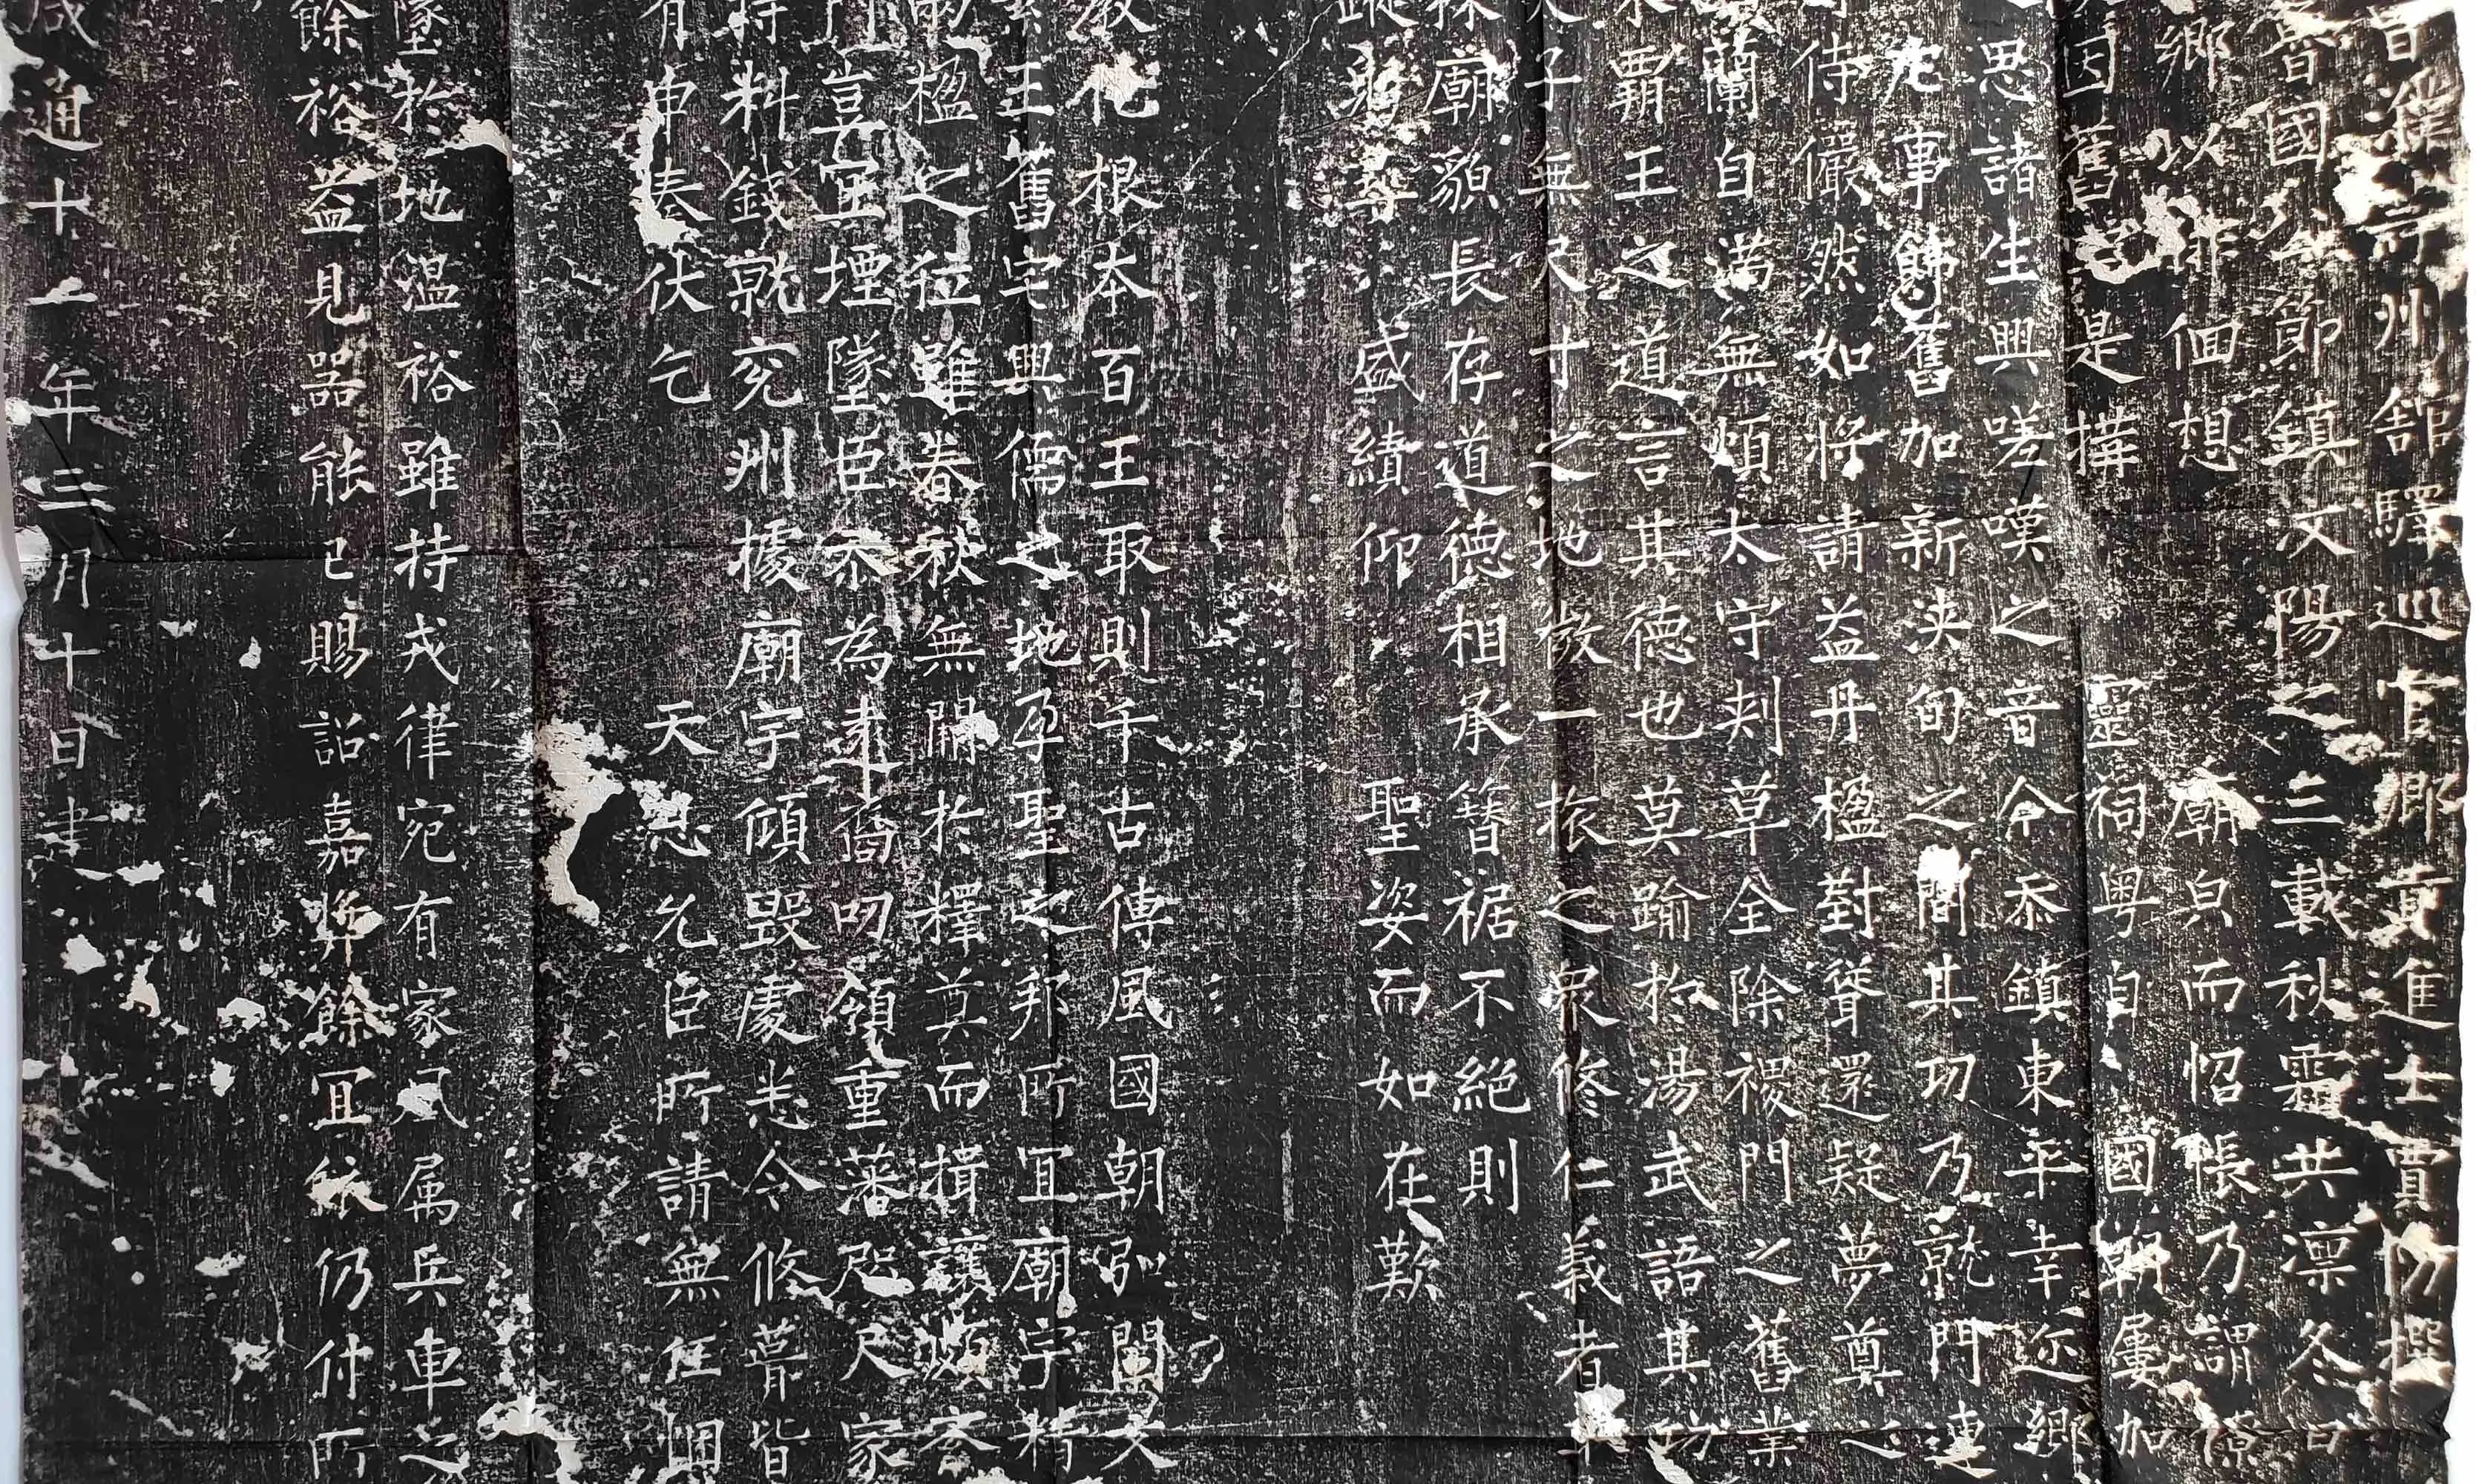 州館驛巡官鄉貢進士賈防撰
國公節鎮汶陽之三載秋霜共凛冬
鄉以徘徊想廟皃而怊悵乃謂
因舊是構靈祠粤自國朝屢加
思諸生興嗟嘆之音今忝鎮東平幸迩鄉
事飾舊加新浹旬之間其功乃就門連
侍儼然如將請益丹楹對聳還疑夢奠
蘭自滿無煩太守刾草全除禝門之舊業
霸王之道言其德也莫踰於湯武語其功
子無尺寸之地微一旅之衆修仁義者
廟貌長存道德相承簪裾不絕則
盛績仰聖姿而如在歎
化根本百王取則千古傳風國朝弘闡文
王舊宅興儒之地孕聖之邦所宜廟宇精
楹之位雖春秋無闕於釋奠而揖讓
豈宜堙墜臣忝為遠裔叨領重藩咫尺家
料錢就兖州據廟宇傾毀處悉令修葺皆
申奏伏乞天恩允臣所請無任
墜於地溫裕雖持戎律宛有家風属兵車之
餘裕益見器能已賜詔嘉餘宜依仍付所
咸通十一年三月十日書